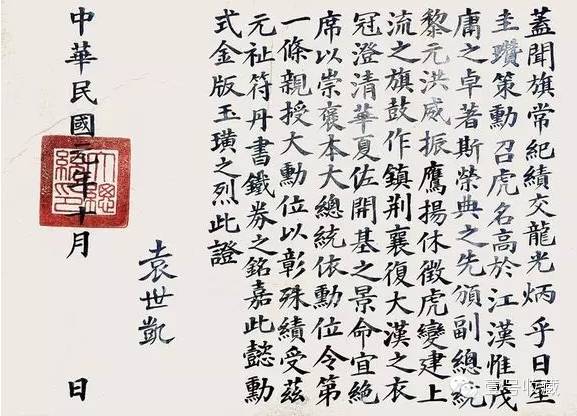 蓋聞旗常紀績交龍光炳乎日星
圭瓚策勳召虎名高於江漢惟茂
庸之卓著斯榮典之先頒副總統
黎元洪威振鷹揚休徵虎變建上
流之旗鼓作鎮荆襄復大漢之衣
冠澄清華夏佐開基之景命宜絶
席以崇褒本大總統依勳位令第
一條親授大勳位以彰殊績受茲
元祉符丹書鐵券之銘嘉此懿勳
式金版玉璜之烈此證
袁世凱
中華民國年十月 日
大總統印
壹号收藏